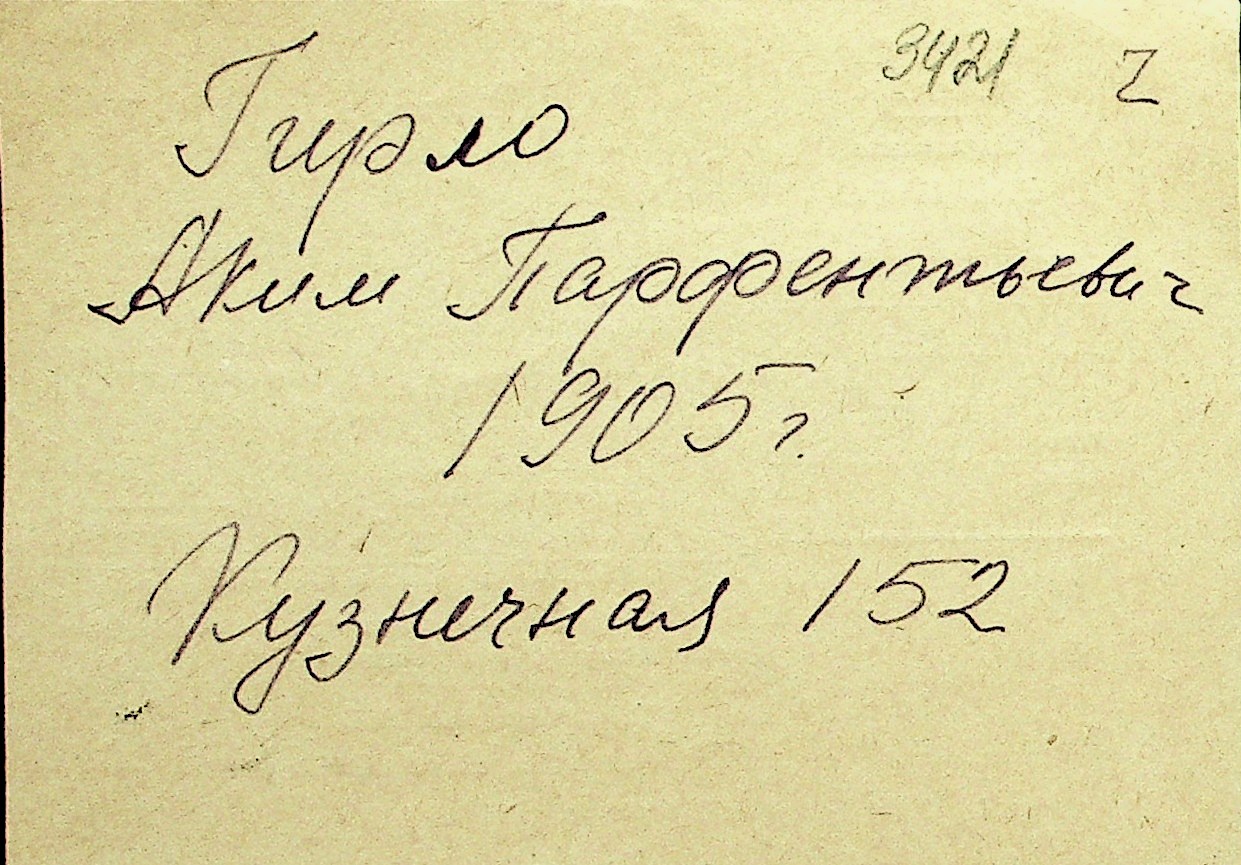 3421 Z
Гирло
Аким Парфентьевич
1905 г.
Кузнечная 152